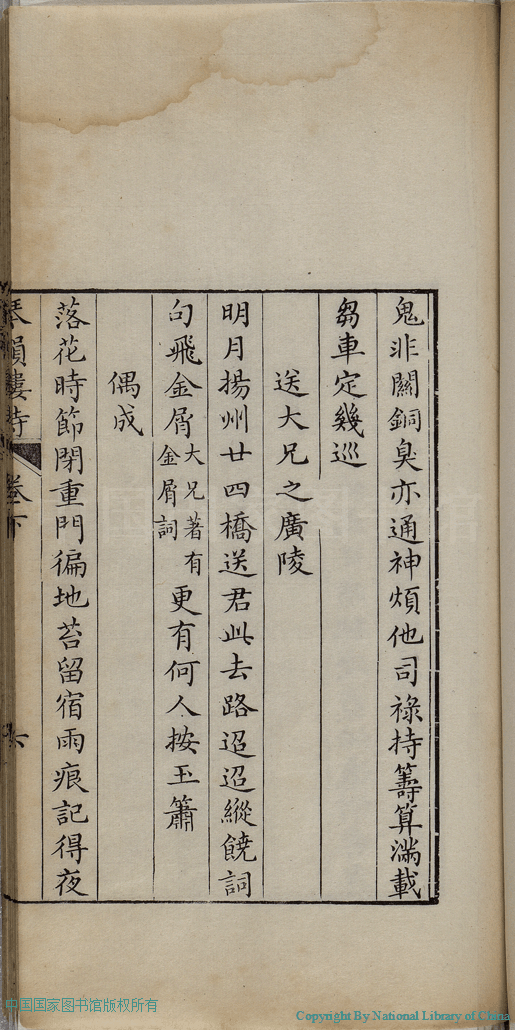 鬼非關銅臭亦通神煩他司祿持籌算滿載
芻車定幾巡
送大兄之廣陵
明月揚州廿四橋送君此去路迢迢縱饒詞
句飛金屑大兄著有金屑詞更有何人按玉簫
偶成
落花時節閉重門徧地苔留宿雨痕記得夜
琴韻樓詩 卷下 六
中国国家图书馆版权所有
Copyright By National Library of China